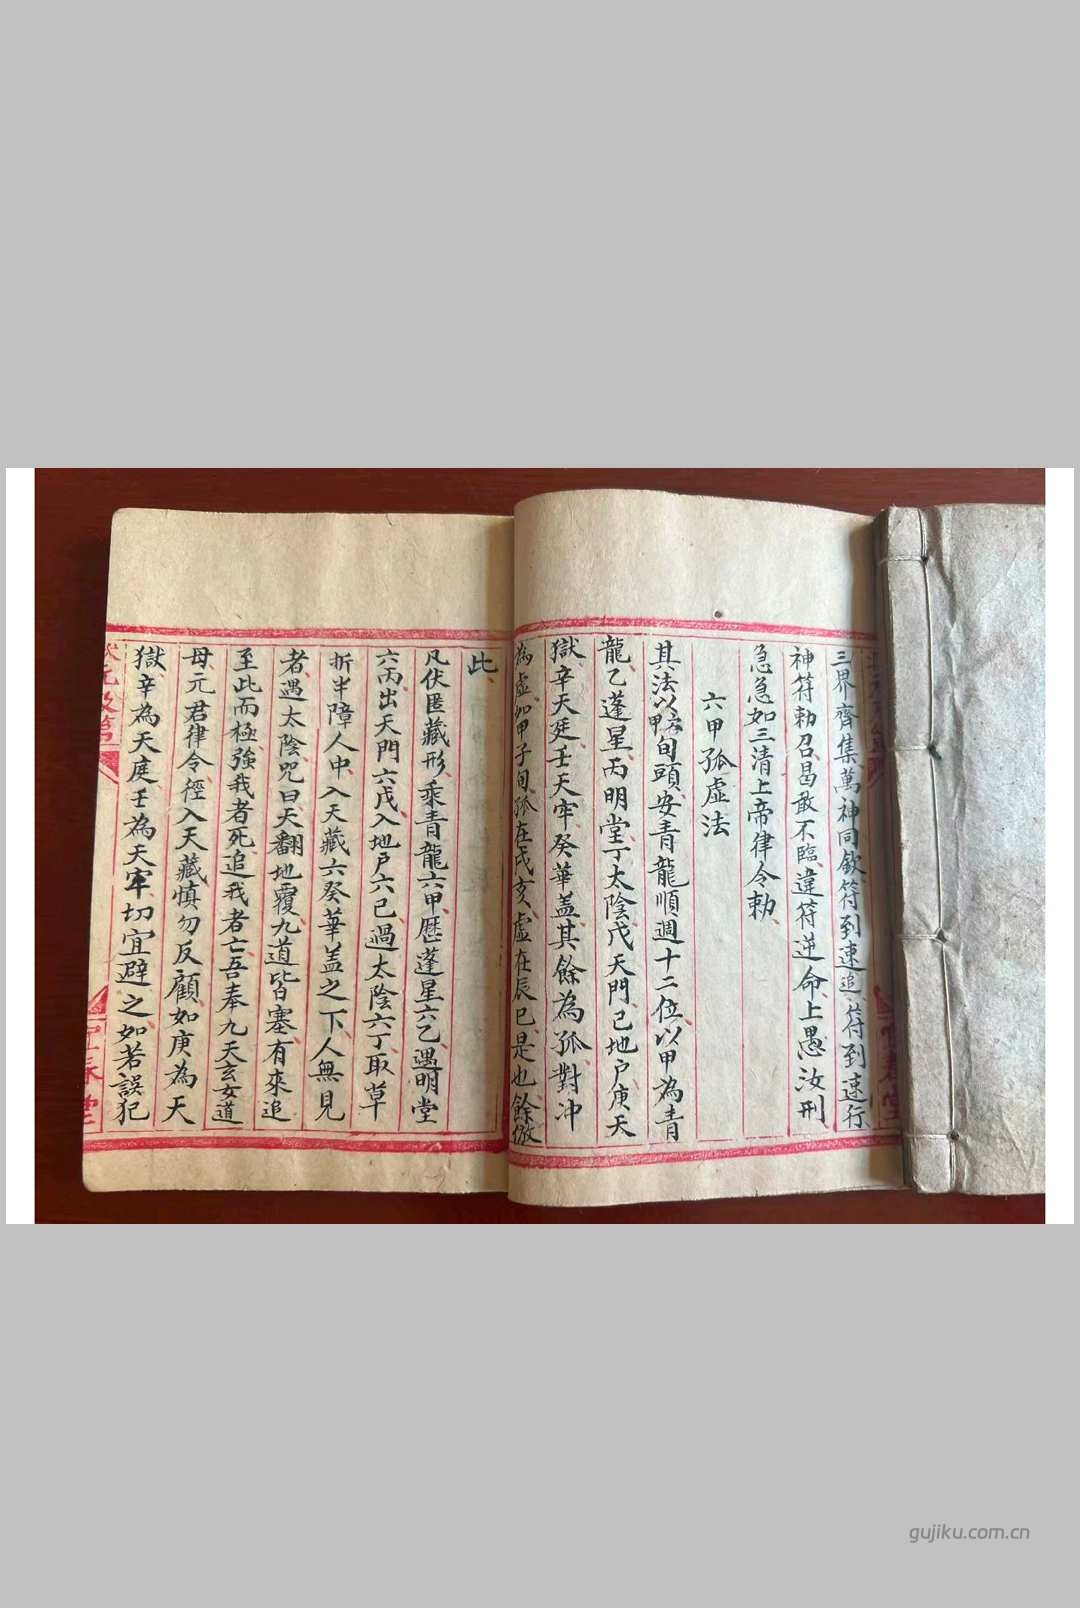 三界齊集萬神同欽符到速追符到速行
神符勅召曷敢不臨違符逆命上愚汝刑
急急如三清上帝律令勅
六甲孤虛法
其法以六甲旬頭安青龍順週十二位以甲為青
龍乙蓬星丙明堂丁太陰戊天門己地戶庚天
獄辛天廷壬天牢癸華盖其餘為孤對冲
為虛如甲子旬孤在戌亥虛在辰巳是也餘倣
此
凡伏匿藏形乘青龍六甲歷蓬星六乙遇明堂
六丙出天門六戊入地戶六己過太陰六丁取草
折半障人中入天藏六癸華盖之下人無見
者過太陰咒曰天翻地覆九道皆塞有來追
至此而極強我者死追我者亡吾奉九天玄女道
母元君律令徑入天藏慎勿反顧如庚為天
獄辛為天庭壬為天牢切宜避之如若誤犯
gujiku.com.cn